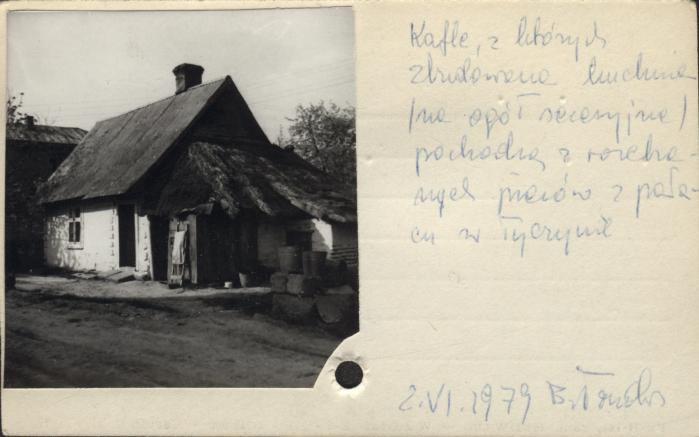 Kafle, z których
zbudowana kuchnia
(na ogół secesyjne)
pochodzą z rozebra-
nych pieców z pała-
cu w Tyczynie
2.VI.1979 B.